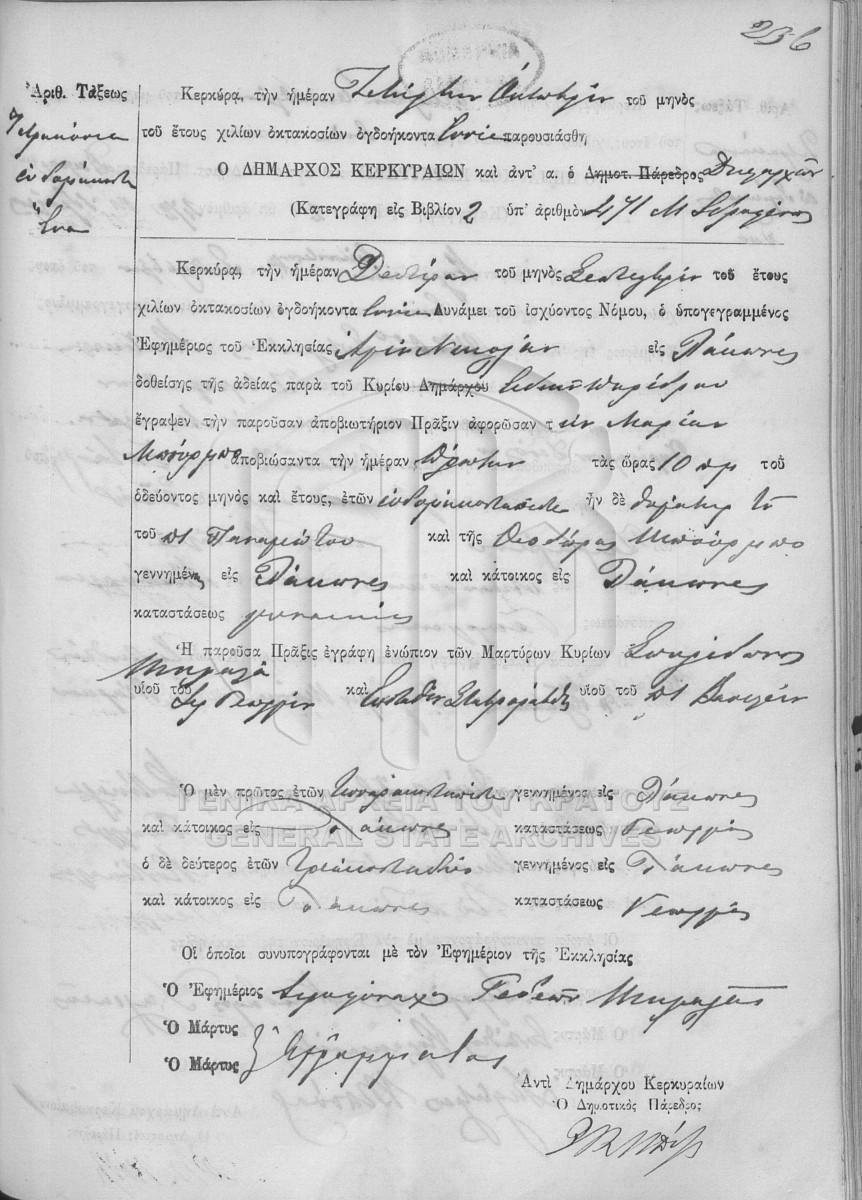 236
Ἀριθ. Τάξεως
Τετρακόσια
ἑβδομήκοντα
ἕνα
Κερκύρα, τὴν ἡμέραν Τετάρτην Ὀκτωβρίου τοῦ μηνὸς
τοῦ ἔτους χιλίων ὀκτακοσίων ὀγδοήκοντα ἐννέα παρουσιάσθη
Ο ΔΗΜΑΡΧΟΣ ΚΕΡΚΥΡΑΙΩΝ καὶ ἀντ' α. ὁ Δημοτ. Πάρεδρος
(Κατεγράφη εἰς Βιβλίον 2 ὑπ' ἀριθμὸν 471
Κερκύρα, τὴν ἡμέραν Δευτέραν τοῦ μηνὸς Σεπτεμβρίου τοῦ ἔτους
χιλίων ὀκτακοσίων ὀγδοήκοντα ἐννέα Δυνάμει τοῦ ἰσχύοντος Νόμου, ὁ ὑπογεγραμμένος
Ἐφημέριος τοῦ Ἐκκλησίας Ἁγίου Νικολάου εἰς Λάκωνες
δοθείσης τῆς ἀδείας παρὰ τοῦ Κυρίου Δημάρχου Εἰδικοῦ Παρέδρου
ἔγραψεν τὴν παροῦσαν ἀποβιωτήριον Πρᾶξιν ἀφορῶσαν τ ὴν Μαρίαν
Μπούρμπο ἀποβιώσαντα τὴν ἡμέραν Πρώτην τὰς ὥρας 10 πμ τοῦ
ὁδεύοντος μηνὸς καὶ ἔτους, ἐτῶν ἑβδομηκονταπέντε ἦν δὲ θυγάτηρ τοῦ
τοῦ π͞ Παναγιώτου καὶ τῆς Θεοδώρας Μπούρμπο
γεννημένη εἰς Λάκωνες καὶ κάτοικος εἰς Λάκωνες
καταστάσεως
Ἡ παροῦσα Πρᾶξις ἐγράφη ἐνώπιον τῶν Μαρτύρων Κυρίων Σπυρίδωνος
Μιχαλᾶ
υἱοῦ τοῦ Γεωργίου καὶ Εὐσταθίου υἱοῦ τοῦ π͞ Βασιλείου
Ὁ μὲν πρῶτος ἐτῶν τεσσαρακονταπέντε γεννημένος εἰς Λάκωνες
καὶ κάτοικος εἰς Λάκωνες καταστάσεως Γεωργός
ὁ δὲ δεύτερος ἐτῶν τριακονταδύο γεννημένος εἰς Λάκωνες
καὶ κάτοικος εἰς Λάκωνες καταστάσεως Γεωργός
Οἱ ὁποῖοι συνυπογράφονται μὲ τὸν Ἐφημέριον τῆς Ἐκκλησίας
Ὁ Ἐφημέριος Ἱερομόναχος Γεδεὼν Μιχαλᾶς
Ὁ Μάρτυς
Ὁ Μάρτυς Ἀγράμματος
Ἀντὶ Δημάρχου Κερκυραίων
Ὁ Δημοτικὸς Πάρεδρος
ΓΕΝΙΚΑ ΑΡΧΕΙΑ ΤΟΥ ΚΡΑΤΟΥΣ
GENERAL STATE ARCHIVES